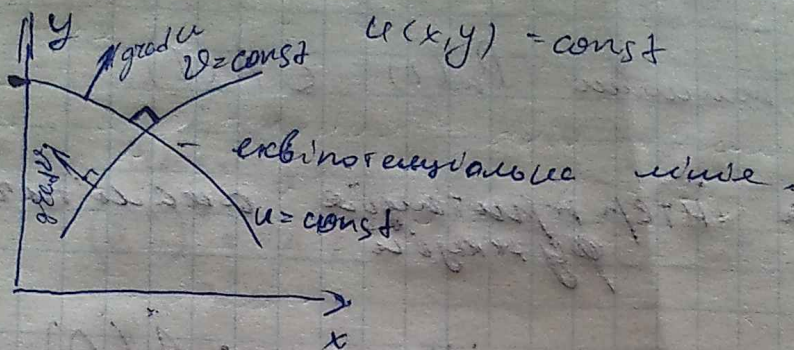 y
grad u
v = const
u(x,y) = const
еквіпотенціальна лінія.
grad v
u = const.
x